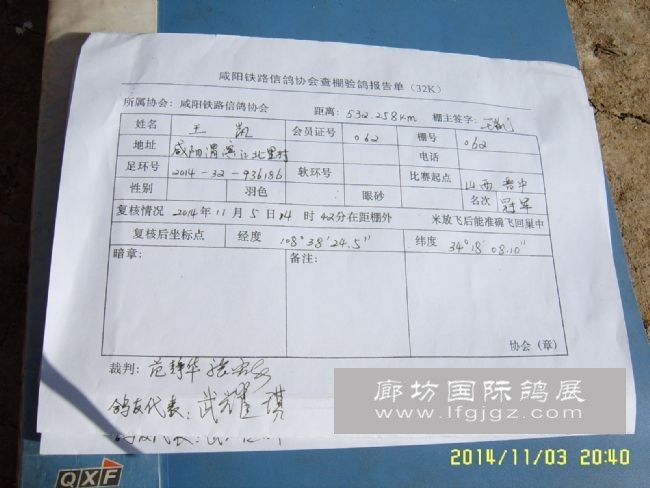 咸阳铁路信鸽协会查棚验鸽报告单（32K）
所属协会：咸阳铁路信鸽协会 距离：532.258km 棚主签字：王凯
姓名 王凯 会员证号 062 棚号 062
地址 咸阳渭滨 北里村 电话
足环号 2014-32-936186 软环号 比赛起点 山西 晋中
性别 羽色 眼砂 名次 冠军
复核情况 2014年11月5日14时42分在距棚外 米放飞后能准确飞回巢中
复核后坐标点 经度 108°38'24.5" 纬度 34°18'08.10"
暗章： 备注：
协会（章）
裁判：范静华
鸽友代表：武耀琪
鸽友代表：
廊坊国际鸽展
www.lfgjgz.com
QXF
2014/11/03 20:40